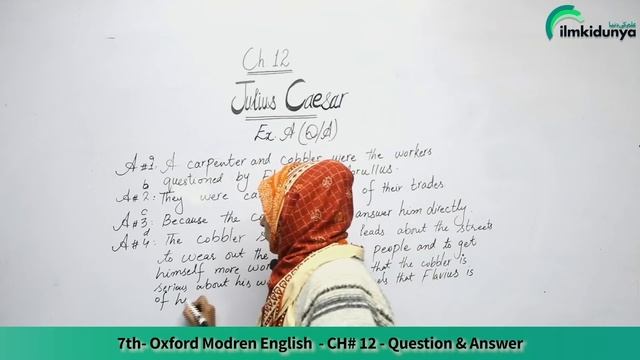 علم کی دنیا
ilmkidunya
Ch 12
Julius Caesar
Ex. A (Q/A)
A#1: A carpenter and cobbler were the workers
a
questioned by
b
A#2: They were of their trades
c
A#3: Because the answer him directly
d
A#4: The cobbler leads about the streets
to wear out the people and to get
himself more that the cobbler is
serious about his that Flavius is
of
7th- Oxford Modren English - CH# 12 - Question & Answer